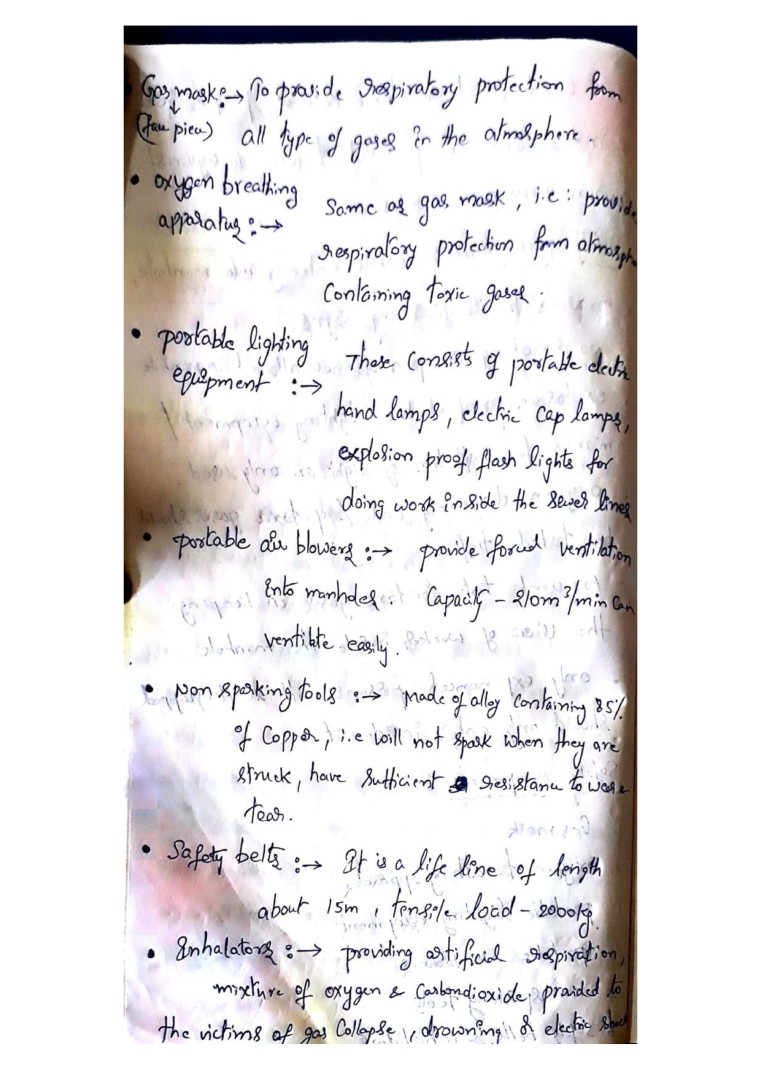 Gas mask :→ To provide respiratory protection from
(face piece) all type of gases in the atmosphere.
• oxygen breathing
apparatus :→ Same as gas mask, i.e: provide
respiratory protection from atmosph
Containing toxic gases.
• portable lighting
equipment :→ These Consists of portable electric
hand lamps, electric Cap lamps,
explosion proof flash lights for
doing work inside the sewer lines
• portable air blowers :→ provide forced ventilation
into manholes. Capacity - 210m³/min Can
ventilate easily.
• Non sparking tools :→ Made of alloy Containing 85%
of Copper, i.e will not spark when they are
struck, have sufficient resistance to wear &
tear.
• Safety belts :→ It is a life line of length
about 15m, tensile load - 2000kg.
• Inhalators :→ providing artificial respiration,
mixture of oxygen & Carbondioxide, provided to
the victims of gas Collapse, drowning & electric shock